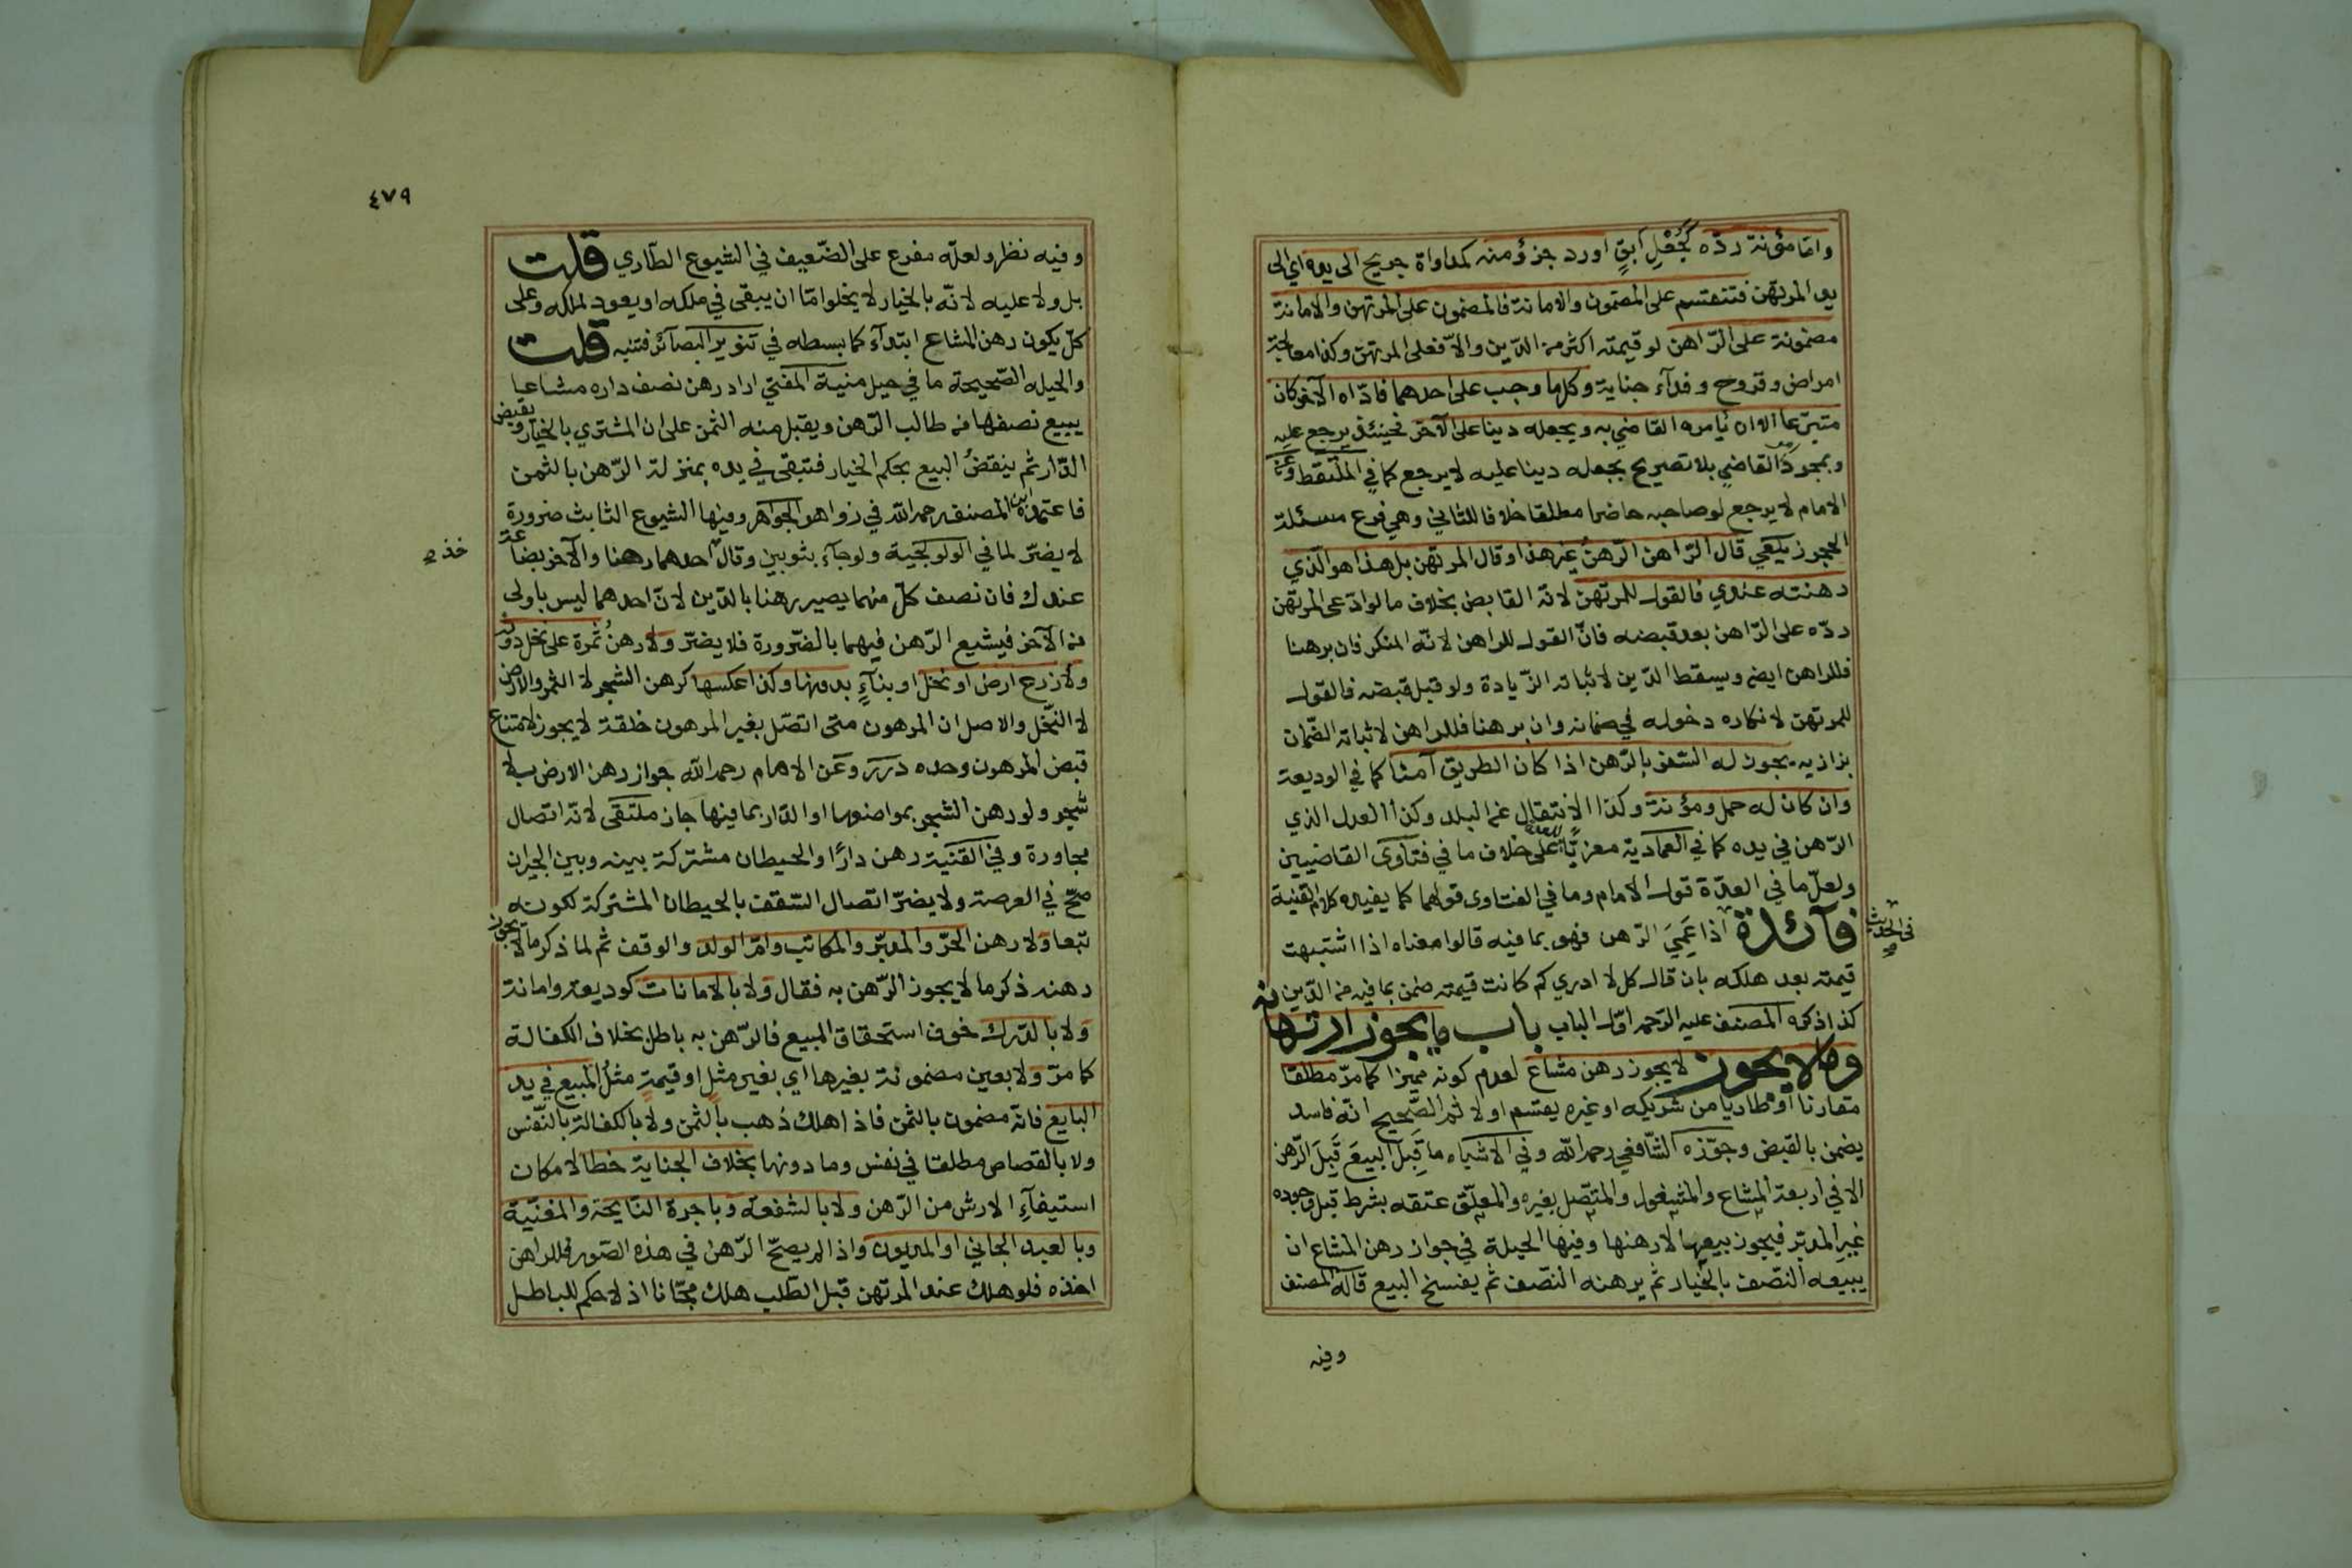 واما مؤنة ردّه كجُعْلِ آبقٍ او رد جزؤ منه كمداواة جريح الى يده اي الى
يد المرتهن فتنقسم على المضمون والامانة فالمضمون على المرتهن والامانة
مضمونة على الرّاهن لو قيمته اكثر من الدّين والاّ فعلى المرتهن وكذا معالجة
امراض وقروح وفدآء جناية وكلما وجب على احدهما فادّاه الآخر كان
متبرّعا الا ان يأمره القاضي به ويجعله دينا على الآخر فحينئذ يرجع عليه
وبمجرد القاضي بلا تصريح بجعله دينا عليه لا يرجع كما في الملتقط وعن
الامام لا يرجع لو صاحبه حاضرا مطلقا خلافا للثاني وهي فرع مسئلة
الحجر زيلعي قال الرّاهن الرّهنُ غير هذا وقال المرتهن بل هذا هو الّذي
رهنته عندي فالقول للمرتهن لانّه القابض بخلاف ما لو ادّعى المرتهن
ردّه على الرّاهن بعد قبضه فانّ القول للراهن لانّه المنكر فان برهنا
فللراهن ايضا ويسقط الدّين لاثباته الزّيادة ولو قبل قبضه فالقول
للمرتهن لانكاره دخوله في ضمانه وان برهنا فللراهن لاثباته الضّمان
بزازيه يجوز له السّفر بالرّهن اذا كان الطريق آمنا كما في الوديعة
وان كان له حمل ومؤنة وكذا الانتقال عن البلد وكذا العدل الذي
الرّهن في يده كما في العمادية معزيًّا للعدة على خلاف ما في فتاوى القاضيين
ولعلّ ما في العدّة قول الامام وما في الفتاوى قولهما كما يفيده كلام القنية
فآئدة في الحديث اذا عَمِيَ الرّهن فهو بما فيه قالوا معناه اذا اشتبهت
قيمته بعد هلكه بان قال كل لا ادري كم كانت قيمته ضمن بما فيه من الدّين
كذا ذكره المصنف عليه الرّحمه اوّل الباب باب ما يجوز ارتهانه
وما لا يجوز لا يجوز رهن مشاع لعدم كونه مميزا كما مرّ مطلقا
مقارنا او طاريا من شريكه او غيره يقسم او لا ثم الصّحيح انّه فاسد
يضمن بالقبض وجوّزه الشّافعي رحمه اللّه وفي الاشباه ما قَبِلَ البيعَ قَبِلَ الرّهن
الا في اربعة المشاع والمشغول والمتّصل بغيره والمعلّق عتقه بشرط قبل وجوده
غير المدبّر فيجوز بيعها لا رهنها وفيها الحيلة في جواز رهن المشاع ان
يبيعه النّصف بالخيار ثم يرهنه النّصف ثم يفسخ البيع قاله المصنف
وفيه
٤٧٩
وفيه نظر ولعلّه مفرع على الضّعيف في الشيوع الطّاري قلت
بل ولا عليه لانّه بالخيار لا يخلو امّا ان يبقى في ملكه او يعود لملكه وعلى
كلّ يكون رهن المشاع ابتدآءً كما بسطه في تنوير البصآئر فتنبه قلت
والحيله الصّحيحة ما في حيل منية المفتي اراد رهن نصف داره مشاعا
يبيع نصفها من طالب الرّهن ويقبل منه الثمن على ان المشتري بالخيار ويقبض
الدّار ثم ينقضُ البيع بحكم الخيار فتبقى في يده بمنزلة الرّهن بالثمن
فاعتمده ابن المصنف رحمه اللّه في زواهر الجواهر وفيها الشيوع الثابت ضرورة
لا يضرّ لما في الولولجية ولو جآء بثوبين وقال خذ احدهما رهنا والآخر بضاعة
عندك فان نصف كلّ منهما يصير رهنا بالدّين لانّ احدهما ليس باولى
من الآخر فيشيع الرّهن فيهما بالضّرورة فلا يضرّ ولا رهنُ ثمرة على نخل دونه
ولا زرع ارض او نخل او بنآءٍ بدونها وكذا عكسها كرهن الشجر لا الثمر والارض
لا النّخل والاصل ان المرهون متى اتصّل بغير المرهون خلقة لا يجوز لامتناع
قبض المرهون وحده درر وعن الامام رحمه اللّه جواز رهن الارض بلا
شجر ولو رهن الشجر بمواضعها او الدّار بما فيها جاز ملتقى لانّه اتصال
مجاورة وفي القنية رهن دارًا والحيطان مشتركة بينه وبين الجيران
صحّ في العرصة ولا يضرّ اتصال السّقف بالحيطان المشتركة لكونه
تبعا ولا رهن الحرّ والمدبّر والمكاتب وامّ الولد والوقف ثم لما ذكر ما لا يجوز
رهنه ذكر ما لا يجوز الرّهن به فقال ولا بالامانات كوديعة وامانة
ولا بالدّرك خوف استحقاق المبيع فالرّهن به باطل بخلاف الكفالة
كما مرّ ولا بعين مضمونة بغيرها اي بغير مثلٍ او قيمةٍ مثلُ المبيع في يد
البايع فانّه مضمون بالثمن فاذا هلك ذهب بالثمن ولا بالكفالة بالنّفس
ولا بالقصاص مطلقا في نفس وما دونها بخلاف الجناية خطا لامكان
استيفآءِ الارش من الرّهن ولا بالشفعه وباجرة النّايحة والمغنّية
وبالعبد الجاني او المديون واذا لم يصحّ الرّهن في هذه الصّور فللراهن
اخذه فلو هلك عند المرتهن قبل الطّلب هلك مجّانا اذ لا حكم للباطل